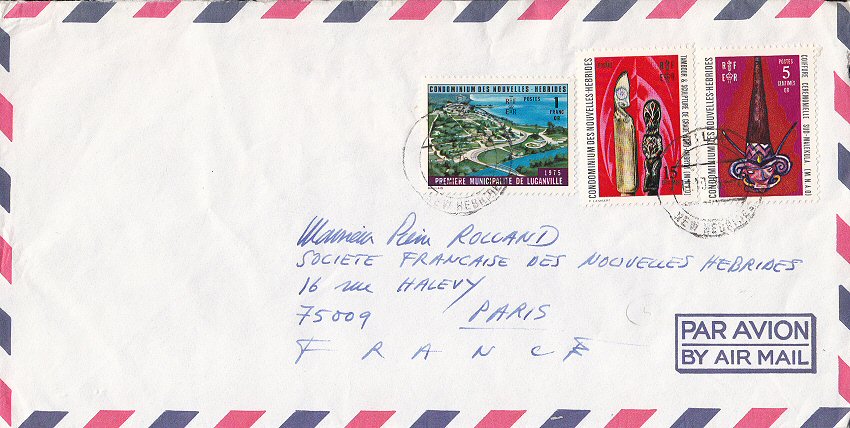 CONDOMINIUM DES NOUVELLES-HEBRIDES
POSTES
1
FRANC
OR
RF
ER
1975
PREMIÈRE MUNICIPALITE DE LUGANVILLE
NEW HEBRIDES
CONDOMINIUM DES NOUVELLES-HEBRIDES
RF
ER
CONDOMINIUM DES NOUVELLES-HEBRIDES
RF
ER
POSTES
5
CENTIMES
OR
COIFFURE CEREMONIELLE SUD-MALEKULA (M N A O)
NEW HEBRIDES
Monsieur Pierre ROLLAND
SOCIETE FRANCAISE DES NOUVELLES HEBRIDES
16 rue HALEVY
75009 PARIS
FRANCE
PAR AVION
BY AIR MAIL